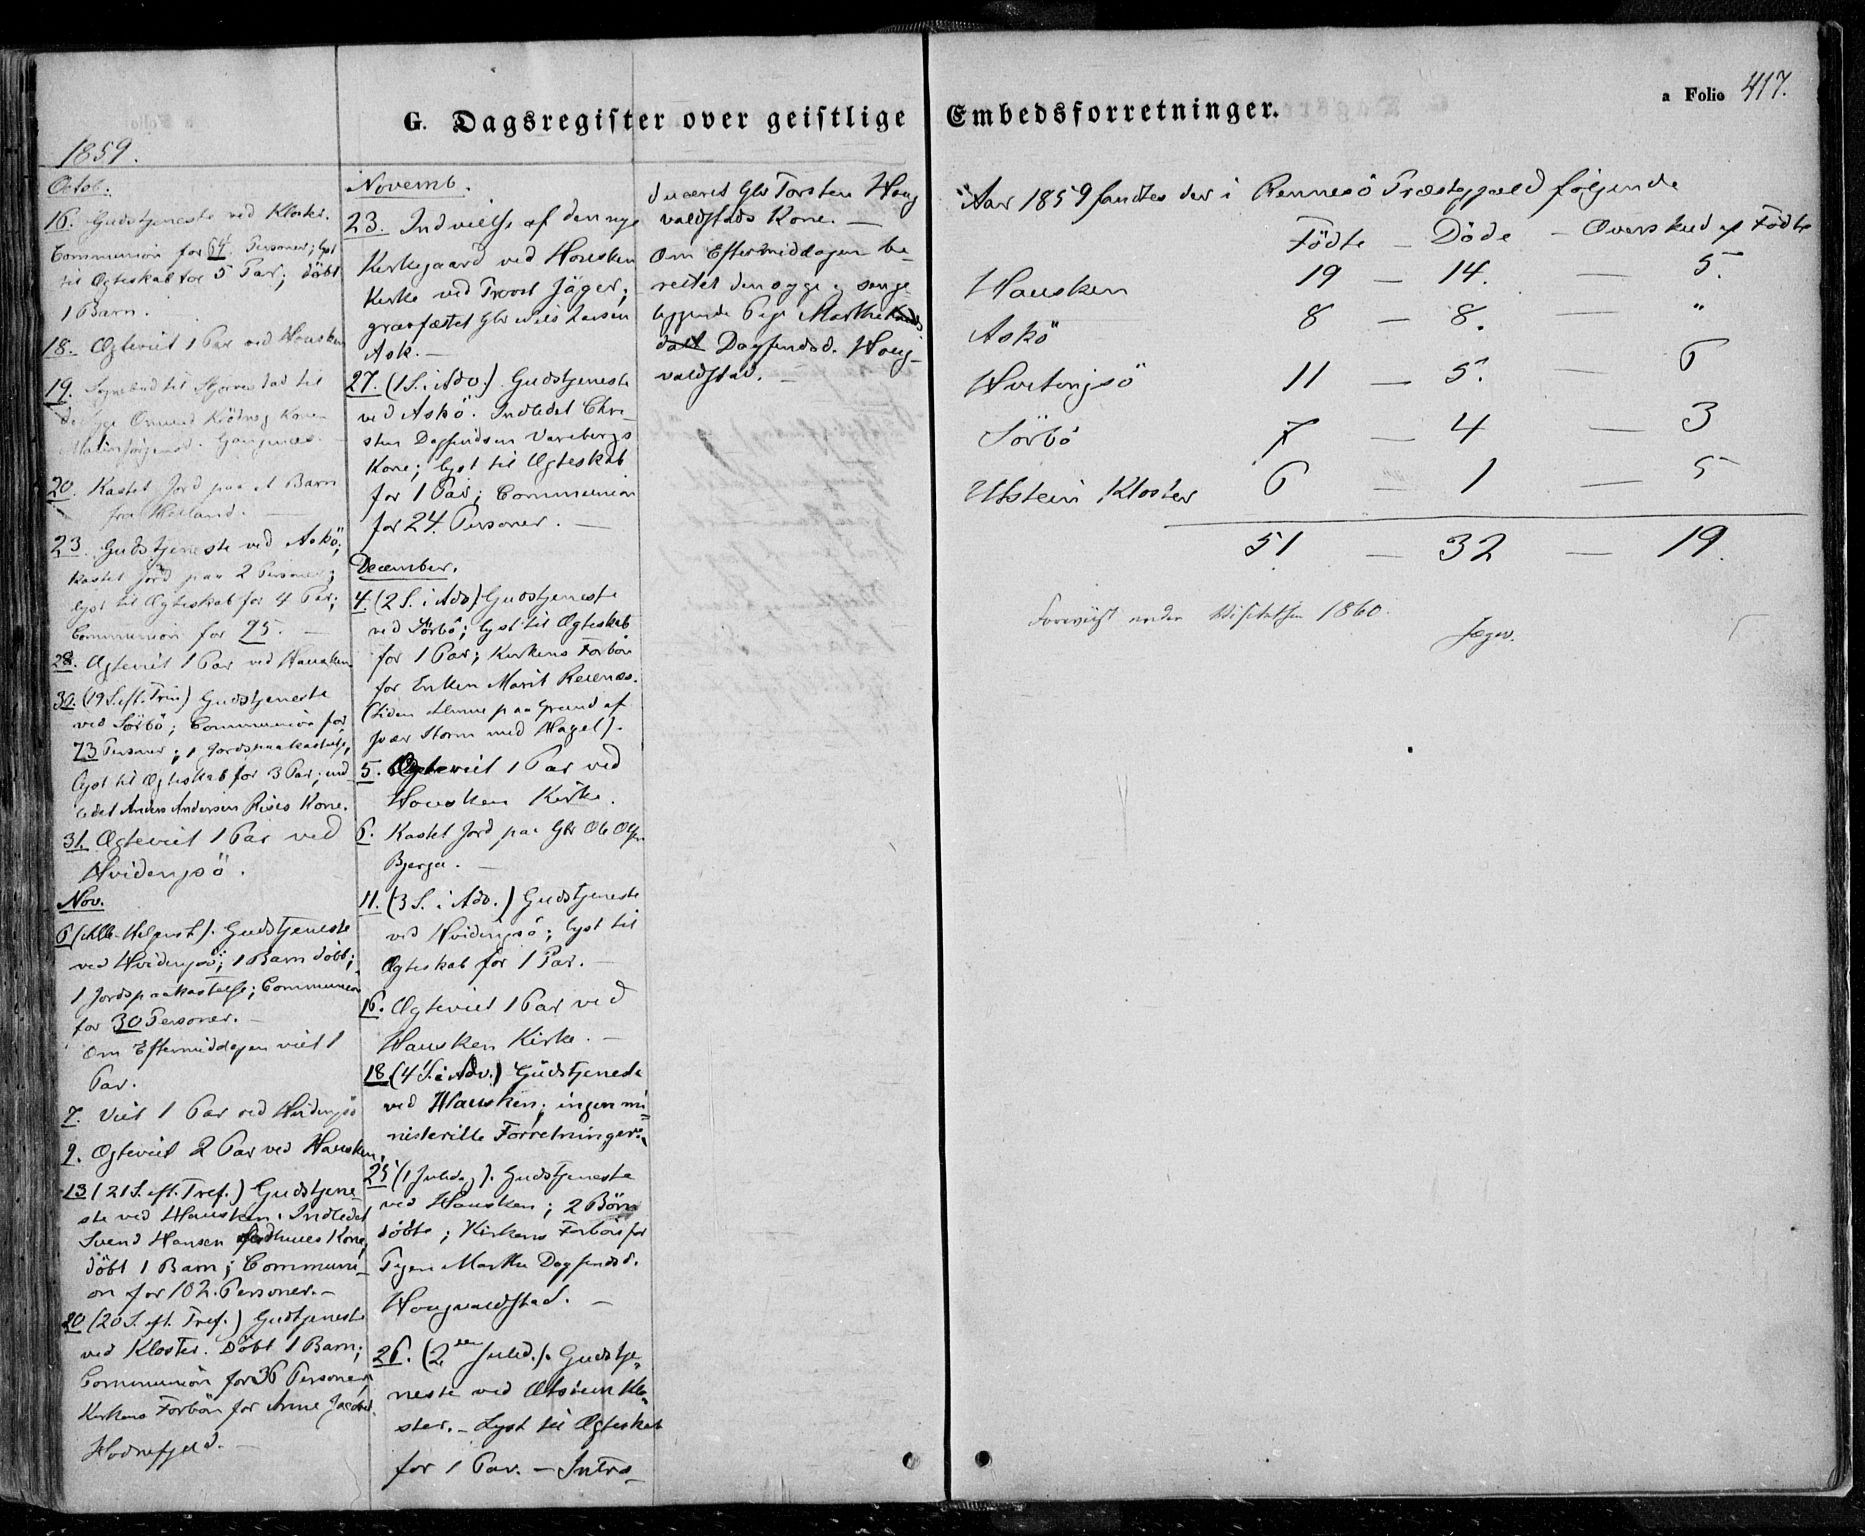 G. Dagsregister over geistlige Embedsforretninger.
a Folio 417.
1859.
Octob.
16. Gudstjeneste ved Kloster.
Communion for 64 Personer; lyst
til Ægteskab for 5 Par; döbt
1 Barn.
18. Ægteviet 1 Par ved Hausken
19. Sognebud til til
syge Omund Kone
20. Kastet Jord paa et Barn
fra
23. Gudstjeneste ved Askö;
kastet Jord paa 2 Personer;
lyst til Ægteskab for 4 Par;
Communion for 95. —
28. Ægteviet 1 Par ved Hausken
30. (19 S. eft. Trin) Gudstjeneste
ved Sörbö; Communion for
73 Personer; 1 Jordspaakastelse,
lyst til Ægteskab for 3 Par; ind-
ledet Anders Andersen Rises Kone.
31. Ægteviet 1 Par ved
Hvidingsö.
Nov.
6 (Alle Helgens F). Gudstjeneste
ved Hvidingsö; 1 Barn döbt;
1 Jordspaakastelse; Communion
for 30 Personer. —
Om Eftermiddagen viet 1
Par.
7. Viet 1 Par ved Hvidingsö
9. Ægteviet 2 Par ved Hausken.
13 (21 S. eft. Tref.) Gudstjene-
ste ved Hausken. Indledet
Svend Hansen Kone,
döbt 1 Barn; Communi-
on for 102. Personer. —
20 (20 S. eft. Tref.) Gudstjeneste
ved Kloster. Döbt 1 Barn;
Communion for 36 Personer,
Kirkens Forbön for Anne Jacobsd.
Hodnefjeld. —
Novemb.
23. Indvielse af den nye
Kirkegaard ved Hausken
Kirke ved Provst Jäger;
gravfæstet Gbr Nils Larsen
Ask. —
27. (1 S. i Adv.) Gudstjeneste
ved Askö. Indledet Chri-
sten Dagfindsen Varebergs
Kone; lyst til Ægteskab
for 1 Par; Communion
for 24. Personer. —
December.
4. (2 S. i Adv) Gudstjeneste
ved Sörbö; lyst til Ægteskab
for 1 Par; Kirkens Forbön
for Enken Marit Reienæs.
(Siden hjemme paa Grund af
svær Storm med Hagel).
5. Ægteviet 1 Par ved
Hausken Kirke.
6. Kastet Jord paa Gbr Ole Olsen
Bjerga. —
11. (3 S. i Adv.) Gudstjeneste
ved Hvidingsö; lyst til
Ægteskab for 1 Par. —
16. Ægteviet 1 Par ved
Hausken Kirke. —
18. (4 S. i Adv.) Gudstjeneste
ved Hausken; ingen mi-
nisterielle Forretninger.
25 (1 Juledag). Gudstjeneste
ved Hausken; 2 Börn
döbte; Kirkens Forbön for
Pigen Marthe Dagfindsd.
Hougvaldstad. —
26. (2den Juled.). Gudstje-
neste ved Utstein Klo-
ster. — Lyst til Ægteskab
for 1 Par. — Intro-
duceret Gbr Torsten Houg
valdstads Kone. —
Om Eftermiddagen be-
rettet den syge og senge
liggende Pige Marthe
Dagfindsd. Houg-
valdstad. —
Aar 1859 fandtes der i Rennesö Præstegjæld følgende
Födte — Döde — Overskud af Födte
Hausken 19 — 14. — 5.
Askö 8 — 8. — "
Hvitingsö 11 — 5. — 6
Sörbö 7 — 4 — 3
Utstein Kloster 6 — 1 — 5
51 — 32 — 19.
Foreviist under Visitatsen 1860.
Jæger.